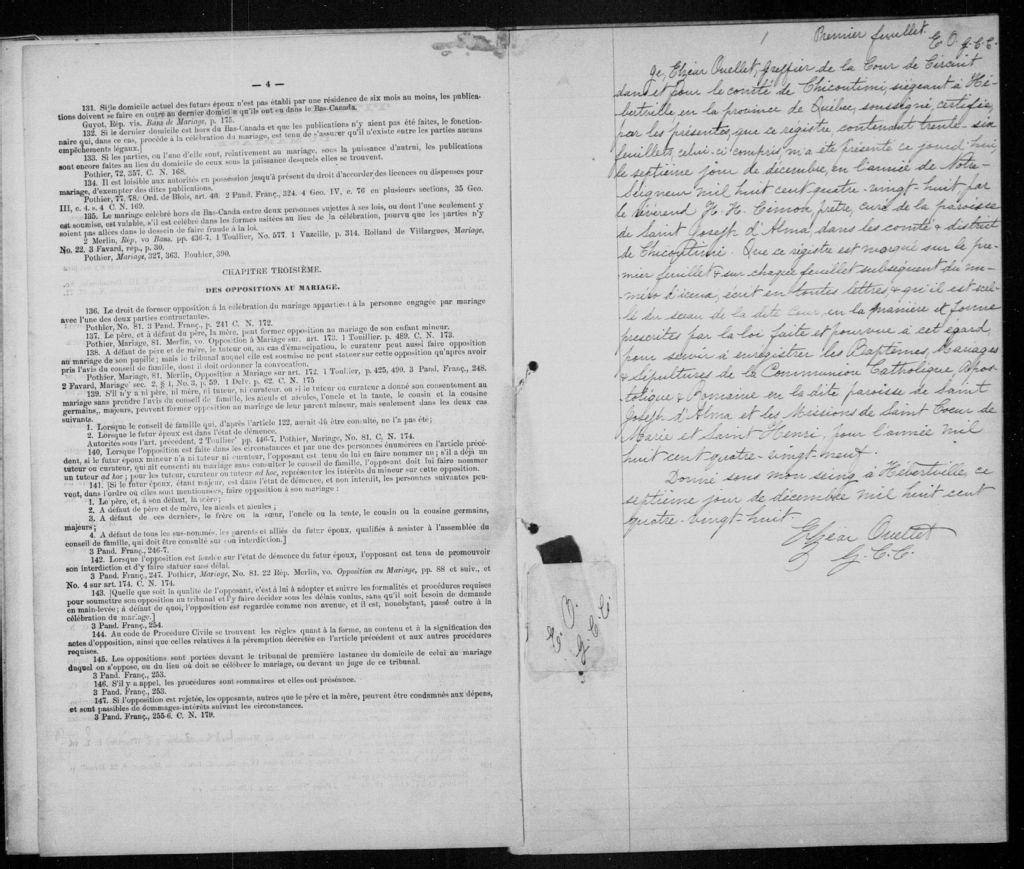 — 4 —
131. Si le domicile actuel des futurs époux n'est pas établi par une résidence de six mois au moins, les publica-
tions doivent se faire en outre au dernier domicile qu'ils ont eu dans le Bas-Canada.
Guyot, Rép. vis. Bans de Mariage, p. 175.
132. Si le dernier domicile est hors du Bas-Canada et que les publications n'y aient pas été faites, le fonction-
naire qui, dans ce cas, procède à la célébration du mariage, est tenu de s'assurer qu'il n'existe entre les parties aucuns
empêchements légaux.
133. Si les parties, ou l'une d'elle sont, relativement au mariage, sous la puissance d'autrui, les publications
sont encore faites au lieu du domicile de ceux sous la puissance desquels elles se trouvent.
Pothier, 72, 357. C. N. 168.
134. Il est loisible aux autorités en possession jusqu'à présent du droit d'accorder des licences ou dispenses pour
mariage, d'exempter des dites publications.
Pothier, 77. 78. Ord. de Blois, art. 40. 2 Pand. Franç., 324. 4 Geo. IV, c. 76 en plusieurs sections, 35 Geo.
III, c. 4. s. 4 C. N. 169.
135. Le mariage célébré hors du Bas-Canda entre deux personnes sujettes à ses lois, ou dont l'une seulement y
est soumise, est valable, s'il est célébré dans les formes usitées au lieu de la célébration, pourvu que les parties n'y
soient pas allées dans le dessein de faire fraude à la loi.
2 Merlin, Rép, vo Bans. pp. 436-7, 1 Toullier, No. 577. 1 Vazeille, p. 314. Rolland de Villargues, Mariage,
No. 22. 3 Favard, rep., p. 30.
Pothier, Mariage, 327, 363. Bouhier, 390.
CHAPITRE TROISIÈME.
DES OPPOSITIONS AU MARIAGE.
136. Le droit de former opposition à la célébration du mariage appartient à la personne engagée par mariage
avec l'une des deux parties contractantes.
Pothier, No. 81. 3 Pand. Franç., p. 241 C. N. 172.
137. Le père, et à défaut du père, la mère, peut former opposition au mariage de son enfant mineur.
Pothier, Mariage, 81. Merlin, vo. Opposition à Mariage sur. art. 173. 1 Toullier. p. 489. C. N. 173.
138. A défaut de père et de mère, le tuteur ou, au cas d'émancipation, le curateur peut aussi faire opposition
au mariage de son pupille; mais le tribunal auquel elle est soumise ne peut statuer sur cette opposition qu'après avoir
pris l'avis du conseil de famille, dont il doit ordonner la convocation.
Pothier, Mariage, 81. Merlin, Opposition à Mariage sur art. 172. 1 Toulier, p. 425, 490. 3 Pand. Franç., 248.
2 Favard, Mariage' sec. 2, § 1, No. 3, p. 59. 1 Delv. p. 62. C. N. 175
139. S'il n'y a ni père, ni mère, ni tuteur, ni curateur, ou si le tuteur ou curateur a donné son consentement au
mariage sans prendre l'avis du conseil de famille, les aïeuls et aïeules, l'oncle et la tante, le cousin et la cousine
germains, majeurs, peuvent former opposition au mariage de leur parent mineur, mais seulement dans les deux cas
suivants.
1. Lorsque le conseil de famille qui, d'après l'article 122, aurait dû être consulté, ne l'a pas été;
2. Lorsque le futur époux est dans l'état de démence.
Autorités sous l'art, précédent, 2 Toullier' pp. 446-7, Pothier, Mariage, No. 81. C, N. 174.
140. Lorsque l'opposition est faite dans les circonstances et par une des personnes énumérées en l'article précé-
dent, si le futur époux mineur n'a ni tuteur ni curateur, l'opposant est tenu de lui en faire nommer un; s'il a déjà un
tuteur ou curateur, qui ait consenti au mariage sans consulter le conseil de famille, l'opposant doit lui faire nommer
un tuteur ad hoc; pour les tuteur, curateur ou tuteur ad hoc, représenter les intérêts du mineur sur cette opposition.
141. [Si le futur époux, étant majeur, est dans l'état de démence, et non interdit, les personnes suivantes peu-
vent, dans l'ordre où elles sont mentionnées, faire opposition à son mariage:
1. Le père, et, à son défaut, la mère;
2. A défaut de père et de mère, les aïeuls et aïeules;
3. A défaut de ces derniers, le frère ou la sœur, l'oncle ou la tente, le cousin ou la cousine germains,
majeurs;
4. A défaut de tous les sus-nommés, les parents et alliés du futur époux, qualifiés à assister à l'assemblée du
conseil de famille, qui doit être consulté sur son interdiction.]
3 Pand. Franç., 246-7.
142. Lorsque l'opposition est fondée sur l'état de démence du futur époux, l'opposant est tenu de promouvoir
son interdiction et d'y faire statuer sans délai.
3 Pand. Franç., 247. Pothier, Mariage, No. 81. 22 Rép. Merlin, vo. Opposition au Mariage, pp. 88 et suiv., et
No. 4 sur art. 174. C. N. 174.
143. [Quelque soit la qualité de l'opposant, c'est à lui à adopter et suivre les formalités et procédures requises
pour soumettre son opposition au tribunal et l'y faire décider sous les délais voulus, sans qu'il soit besoin de demande
en main-levée; à défaut de quoi, l'opposition est regardée comme non avenue, et il est, nonobstant, passé outre à la
célébration du mariage.]
3 Pand. Franç., 254.
144. Au code de Procédure Civile se trouvent les règles quant à la forme, au contenu et à la signification des
actes d'opposition, ainsi que celles relatives à la péremption décrétée en l'article précédent et aux autres procédures
requises.
145. Les oppositions sont portées devant le tribunal de première instance du domicile de celui au mariage
duquel on s'oppose, ou du lieu où doit se célébrer le mariage, ou devant un juge de ce tribunal.
3 Pand. Franç., 253.
146. S'il y a appel, les procédures sont sommaires et elles ont préséance.
3 Pand. Franç., 253.
147. Si l'opposition est rejetée, les opposants, autres que le père et la mère, peuvent être condamnés aux dépens,
et sont passibles de dommages-intérêts suivant les circonstances.
3 Pand. Franç., 255-6. C. N. 179.
1 Premier feuillet. E. O. G. C. C.
Je, Elzéar Ouellet, Greffier de la Cour de Circuit
dans et pour le comté de Chicoutimi siégeant à Hé-
bertville en la province de Québec, soussigné, certifie,
par les présentes, que ce régistre, contenant trente-six
feuillets, celui-ci compris, m'a été présenté ce jourd'hui
le septième jour de décembre, en l'année de Notre-
Seigneur mil huit cent quatre-vingt-huit par
le Révérend H. H. Cimon prêtre, curé de la paroisse
de Saint Joseph d'Alma, dans les comté & district
de Chicoutimi. Que ce régistre est marqué sur le pre-
mier feuillet & sur chaque feuillet subséquent du nu-
méro d'icelui, écrit en toutes lettres, & qu'il est scel-
lé du sceau de la dite Cour, en la manière et forme
prescrites par la loi faite et pourvue à cet égard,
pour servir à enregistrer les Baptêmes, Mariages
& Sépultures de la Communion Catholique Apos-
tolique & Romaine en la dite paroisse de Saint
Joseph d'Alma et les Missions de Saint Coeur de
Marie et Saint Henri, pour l'année mil
huit cent quatre-vingt-neuf.
Donné sous mon seing à Hébertville, ce
septième jour de décembre mil huit cent
quatre-vingt-huit
Elzéar Ouellet
G. C. C.
E. O.
G. C. C.